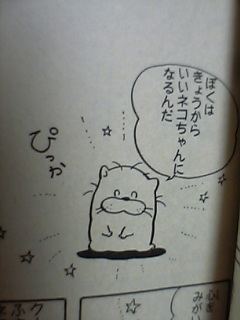 ぼくは
きょうから
いいネコちゃんに
なるんだ
ぴっか
心を
みがい